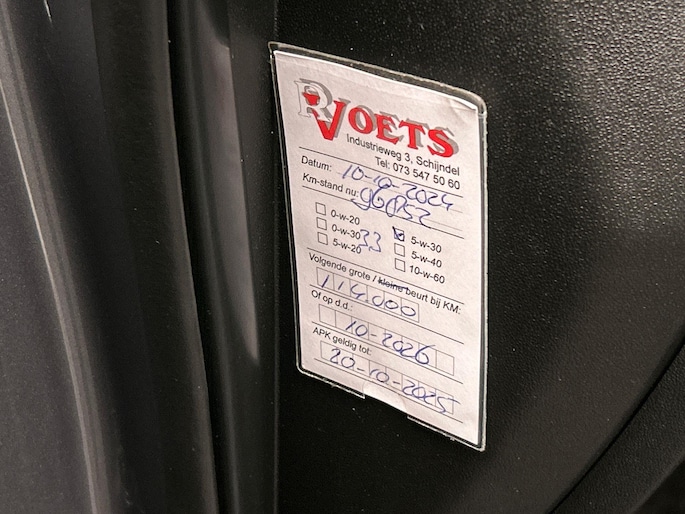 R VOETS
Industrieweg 3, Schijndel
Tel: 073 547 50 60
Datum: 10-10-2024
Km-stand nu:
0-w-20 5-w-30
0-w-30 33 5-w-40
5-w-20 10-w-60
Volgende grote / kleine beurt bij KM:
114.000
Of op d.d.:
10-2026
APK geldig tot:
20-10-2025